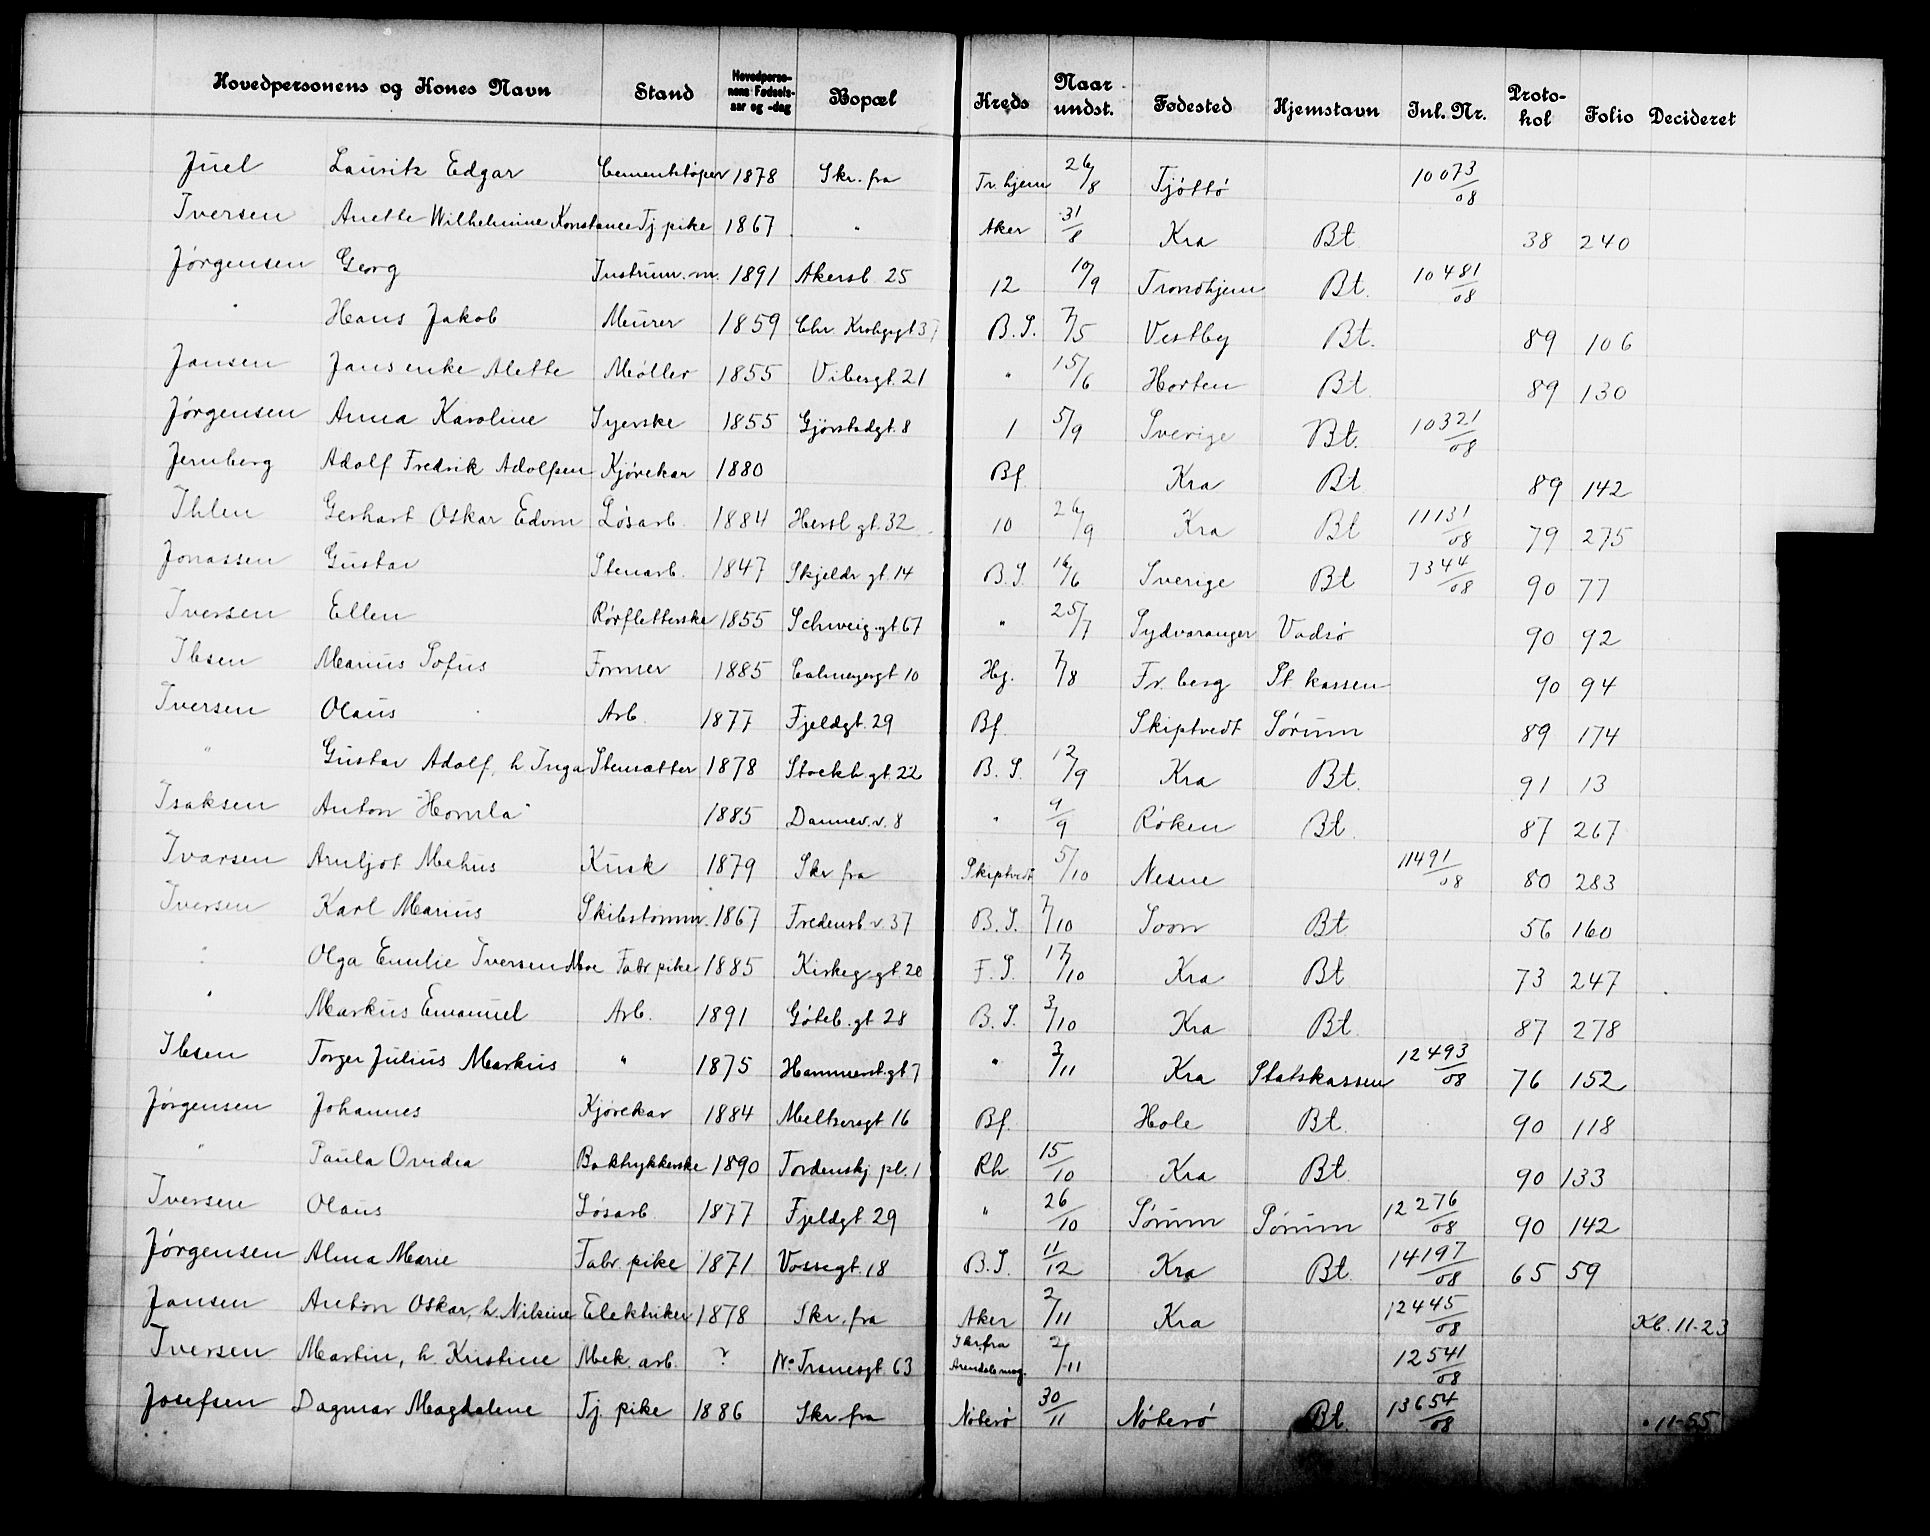 Hovedpersonens og Kones Navn Stand Hovedpersonens Fødselsaar og -dag Bopæl Kreds Naar undst. Fødested Hjemstavn Inl. Nr. Protokol Folio Decideret
Juel Lauritz Edgar Cementstøper 1878 Skr. fra Tr.hjem 26/8 Tjøttø 10073/08
Iversen Anette Wilhelmine Konstance Tj. pike 1867 " Aker 31/8 Kra Bt. 38 240
Jørgensen Georg Instrum. m. 1891 Akersb. 25 12 10/9 Trondhjem Bt. 10481/08
" Hans Jakob Murer 1859 Chr. Krohgsgt 37 B.S. 7/5 Vestby Bt. 89 106
Jansen Jansenke Alette Møller 1855 Vibesgt. 21 " 15/6 Horten Bt. 89 130
Jørgensen Anna Karoline Syerske 1855 Gjørstadgt. 8 1 5/9 Sverige Bt. 10321/08
Jernberg Adolf Fredrik Adolfsen Kjørekar 1880 Bf. Kra Bt. 89 142
Ihlen Gerhart Oskar Edvin Løsarb. 1884 Hersl. gt. 32 10 26/9 Kra Bt 11131/08 79 275
Jonassen Gustav Stenarb. 1847 Skjeldr. gt. 14 B.S. 16/6 Sverige Bt 7344/08 90 77
Iversen Ellen Rørfletterske 1855 Schweig. gt 67 " 25/7 Sydvaranger Vadsø 90 92
Ibsen Marius Sofus Former 1885 Calmeyergt 10 Hg. 7/8 Fr. berg St. kassen 90 94
Iversen Olaus Arb. 1877 Fjeldgt. 29 Bf. Skiptvedt Sørum 89 174
" Gustav Adolf, h. Inga Stensætter 1878 Stockh. gt. 22 B.S. 12/9 Kra Bt. 91 13
Isaksen Anton "Homla" 1885 Dannev. v. 8 " 9/9 Røken Bt. 87 267
Ivarsen Arnljot Mehus Kusk 1879 Skr. fra Skiptvedt 5/10 Nesne 11491/08 80 283
Iversen Karl Marius Skibstømm. 1867 Fredensb. v. 37 B.S. 7/10 Soon Bt. 56 160
" Olga Emilie Iversen Moe Fabr. pike 1885 Kirkeg. gt 20 F.S. 17/10 Kra Bt 73 247
" Markus Emanuel Arb. 1891 Gøteb. gt 28 B.S. 3/10 Kra Bt. 87 278
Ibsen Torger Julius Markus " 1875 Hammerst. gt 7 " 3/11 Kra Statskassen 12493/08 76 152
Jørgensen Johannes Kjørekar 1884 Meltzersgt 16 Bf. Hole Bt. 90 118
" Paula Ovidia Boktrykkerske 1890 Tordenskj. pl. 1 Rh. 15/10 Kra Bt. 90 133
Iversen Olaus Løsarb. 1877 Fjeldgt. 29 " 26/10 Sørum Sørum 12276/08 90 142
Jørgensen Alma Marie Fabr. pike 1871 Vossegt. 18 B.S. 11/12 Kra Bt. 14197/08 65 59
Jansen Anton Oskar, h. Nilsine Elektriker 1878 Skr. fra Aker 2/11 Kra 12445/08 Kb. 11-23
Iversen Martin, h. Kristine Mek. arb. ? No Tranesgt. 63 Skr. fra Arendals mag. 2/11 12541/08
Josefsen Dagmar Magdalene Tj. pike 1886 Skr. fra Nøterø 30/11 Nøterø Bt. 13654/08 " 11-55